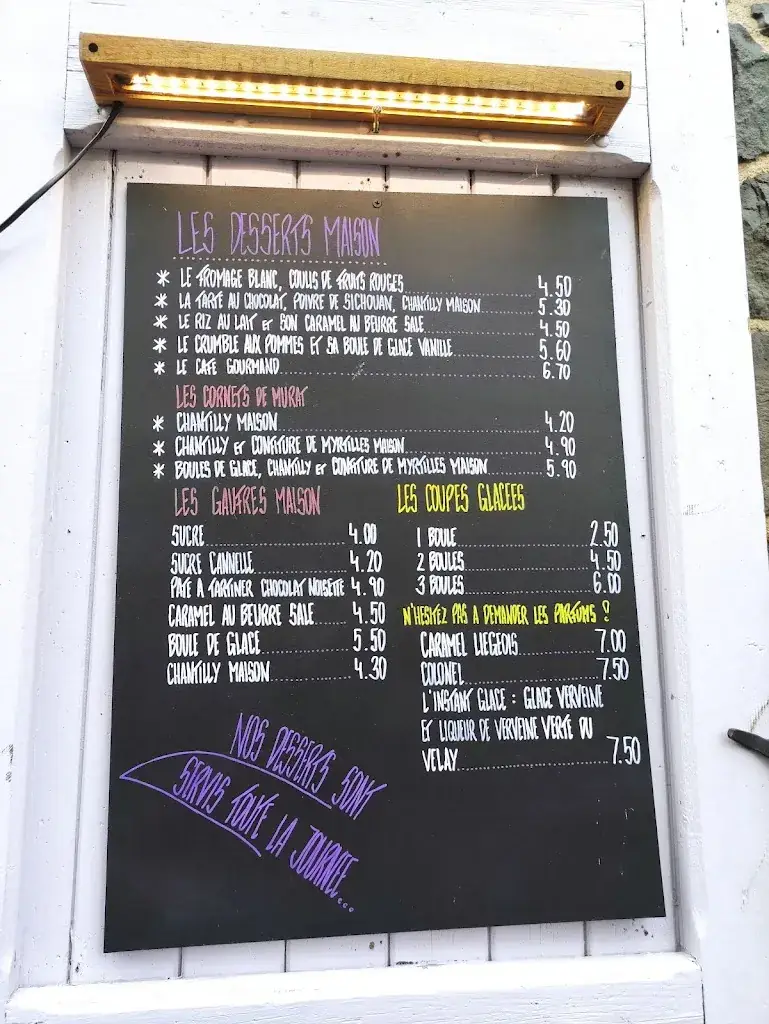 LES DESSERTS MAISON
* LE FROMAGE BLANC, COULIS DE FRUITS ROUGES 4.50
* LA TARTE AU CHOCOLAT, POIVRE DE SICHOUAN, CHANTILLY MAISON 5.30
* LE RIZ AU LAIT ET SON CARAMEL AU BEURRE SALE 4.50
* LE CRUMBLE AUX POMMES ET SA BOULE DE GLACE VANILLE 5.60
* LE CAFE GOURMAND 6.70
LES CORNETS DE MURAT
* CHANTILLY MAISON 4.20
* CHANTILLY ET CONFITURE DE MYRTILLES MAISON 4.90
* BOULES DE GLACE, CHANTILLY ET CONFITURE DE MYRTILLES MAISON 5.90
LES GAUFRES MAISON
SUCRE 4.00
SUCRE CANNELLE 4.20
PATE A TARTINER CHOCOLAT NOISETTE 4.90
CARAMEL AU BEURRE SALE 4.50
BOULE DE GLACE 5.50
CHANTILLY MAISON 4.30
LES COUPES GLACEES
1 BOULE 2.50
2 BOULES 4.50
3 BOULES 6.00
N'HESITEZ PAS A DEMANDER LES PARFUMS !
CARAMEL LIEGEOIS 7.00
COLONEL 7.50
L'INSTANT GLACE : GLACE VERVEINE
ET LIQUEUR DE VERVEINE VERTE DU
VELAY 7.50
NOS DESSERTS SONT
SERVIS TOUTE LA JOURNEE...